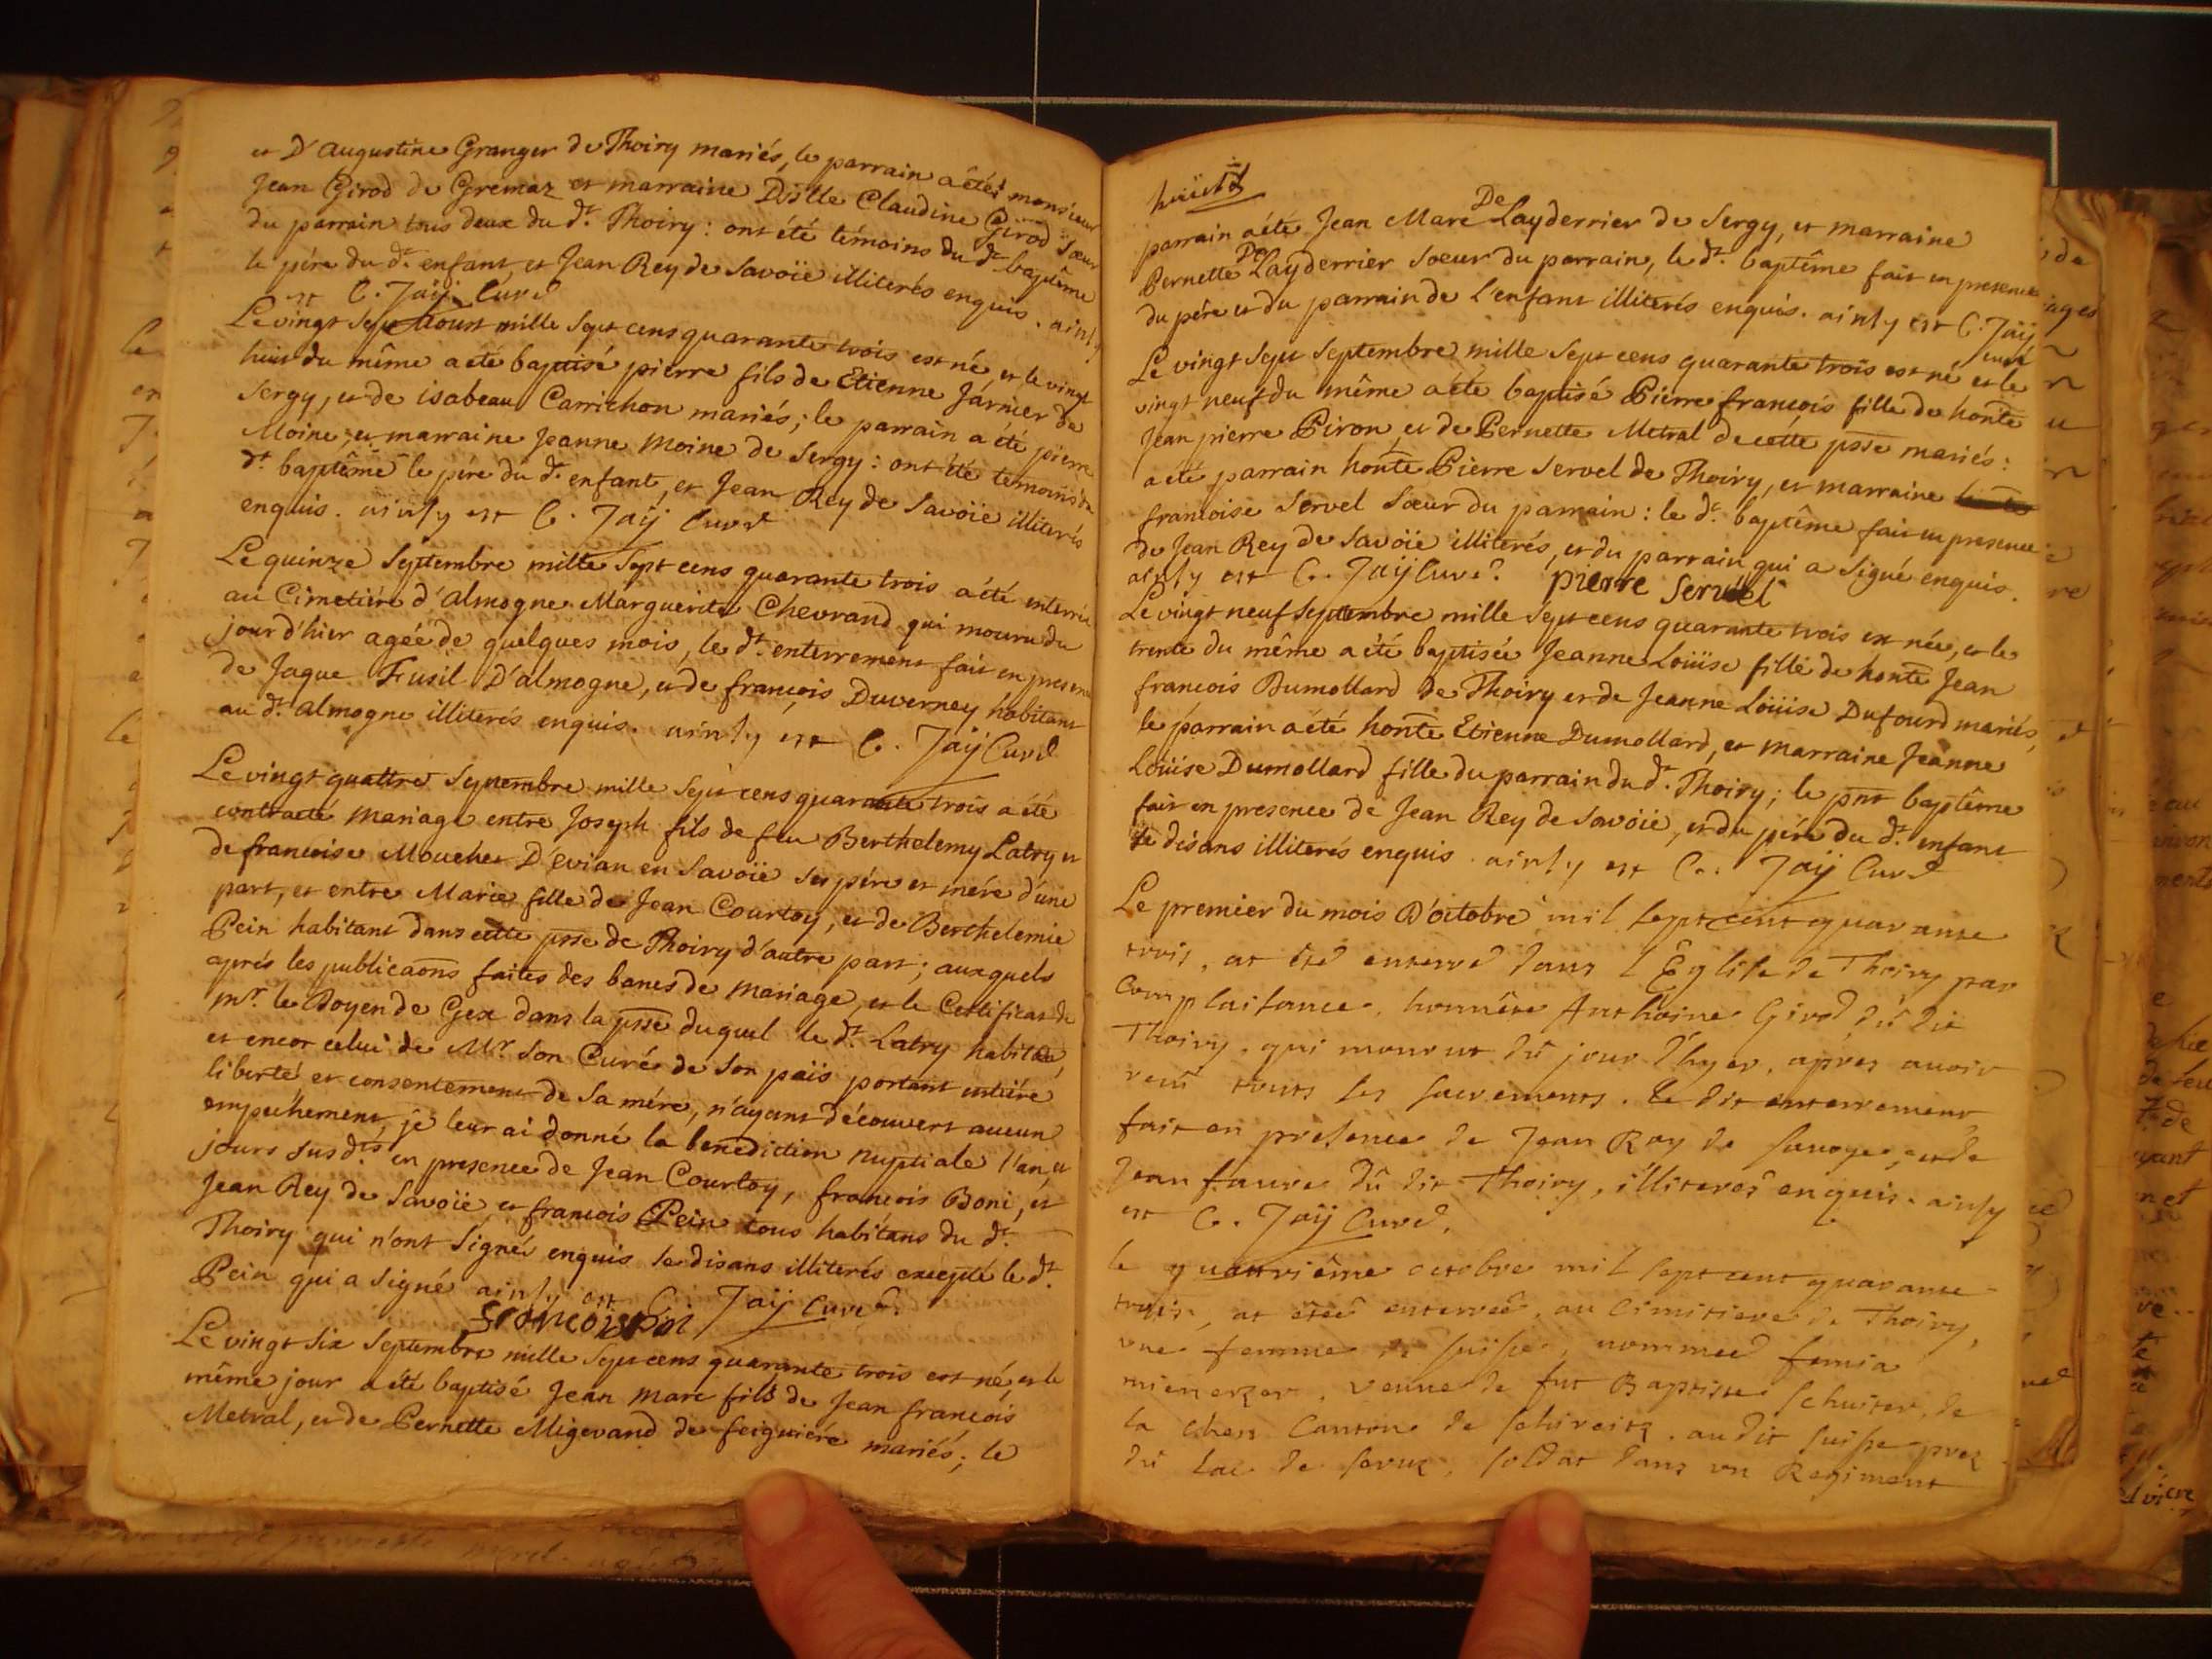 et D'augustine Granger de Thoiry mariés, le parrain a êté monsieur
Jean Girod de Gremaz et marraine Dlle Claudine Girod sœur
du parrain tous deux du dt. Thoiry : ont été témoins du dt. baptême
le pére du dt. enfant, et Jean Rey de Savoïe illiterés enquis. ainsy
est C. Jaÿ Curé
Le vingt sept aoust mille sept cens quarante trois est né et le vingt
huit du même a eté baptisé pierre fils de Etienne Jarnier de
Sergy, et de isabeau Carrichon mariés; le parrain a été pierre
Moine, et marraine Jeanne Moine de Sergy : ont été temoins du
dt. baptême le pére du dt. enfant, et Jean Rey de Savoïe illiterés
enquis. ainsy est C. Jaÿ Curé
Le quinze Septembre mille Sept cens quarante trois a été enterrée
au Cimetiére d'almogne Marguerite Chevrand qui mouru du
jour d'hier agée de quelques mois, le dt. enterrement fait en presence
de Jaque Fusil D'almogne, et de françois Duverney habitant
au dt. almogne illiterés enquis. ainsy est C. Jaÿ Curé
Le vingt quattre Septembre mille Sept cens quarante trois a été
contracté mariage entre Joseph fils de feu Berthelemy Latry et
de francoise Mouchet D'evian en Savoïe ses pére et mére d'une
part, et entre Marie fille de Jean Courtoy, et de Berthelemie
Pein habitant dans cette psse de Thoiry d'autre part; auxquels
aprés les publicaons faites des bancs de mariage, et le Certificat de
Mr. le Doyen de Gex dans la psse duquel le dt. Latry habite,
et encor celui de Mr son Curé de son païs portant entiére
liberté et consentement de Sa mére, n'ayant découvert aucun
empéchement, je leur ai donné la benediction nuptiale l'an, et
jours susdts en presence de Jean Courtoy, francois Boni, et
Jean Rey de Savoïe et francois Pein tous habitans du dt.
Thoiry qui n'ont signés enquis se disans illiterés excepté le dt.
Pein qui a signé ainsy est C. Jaÿ Curé.
francois pein
Le vingt six Septembre mille Sept cens quarante trois est né, et le
même jour a été baptisé Jean Marc fils de Jean françois
Metral, et de Pernette Migerand de feiguiére mariés; le
huict
parrain a été Jean Marc De Layderrier de Sergy, et marraine
Pernette De Layderrier sœur du parrain, le dt. baptême fait en presence
du pére et du parrain de l'enfant illiterés enquis. ainsy est C. Jaÿ
curé
Le vingt sept Septembre mille sept cens quarante trois est né et le
vingt neuf du même a été baptisé Pierre françois fille de honte
Jean pierre Piron et de Pernette Metral de cette psse mariés :
a eté parrain honte Pierre Servel de Thoiry, et marraine
francoise Servel sœur du parrain : le dt. baptême fait en presence
de Jean Rey de Savoïe illiterés, et du parrain qui a Signé enquis.
ainsy est C. Jaÿ Curé. pierre Servel
Le vingt neuf Septembre mille sept cens quarante trois est née, et le
trente du même a été baptisée Jeanne Loüise fille de honte Jean
francois Dumollard de Thoiry et de Jeanne Loüise Dufourd mariés,
le parrain a été honte Etienne Dumollard, et marraine Jeanne
Loüise Dumollard fille du parrain du dt. Thoiry; le pnt baptême
fait en presence de Jean Rey de Savoïe, et du pére du dt. enfant
se disans illiterés enquis. ainsy est C. Jaÿ Curé
Le premier du mois D'octobre mil sept cent quarante
trois, at eté enterré dans l'Eglise de Thoiry par
complaisance, honnête Anthoine Girod du dit
Thoiry, qui mourut du jour d'hyer, apres avoir
reçû touts les sacrements. Le dit enterrement
fait en présence de Jean Ray de savoye, et de
Jean faure du dit Thoiry, illiterés enquis. ainsy
est C. Jaÿ Curé.
le quattriême octobre mil sept cent quarante
trois, at êtéé enterreé, au cimitiere de Thoiry,
une femme de suisse, nommeé
veuve de fut Baptiste Schuiter, de
la Canton de . audit suisse prez
du lac de , soldat dans un Regiment